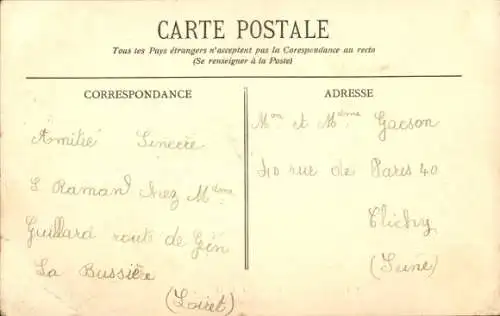 CARTE POSTALE
Tous les Pays étrangers n'acceptent pas la Corespondance au recto
(Se renseigner à la Poste)
CORRESPONDANCE
Amitié Sincère
L Raman chez Mdme
Guillard rout de Gien
La Bussière
(Loiret)
ADRESSE
Mon et Mdme Gacson
40 rue de Paris 40
Clichy
(Seine)